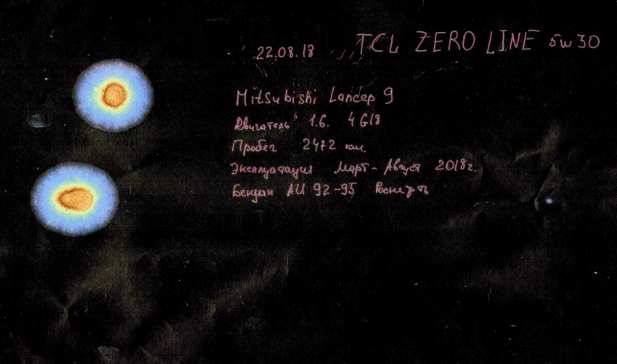 22.08.18 TCL ZERO LINE 5w30
Mitsubishi Lancер 9
Двигатель 1.6. 4G18
Пробег 2472 км.
Эксплуатация Март - Август 2018г.
Бензин АИ 92-95